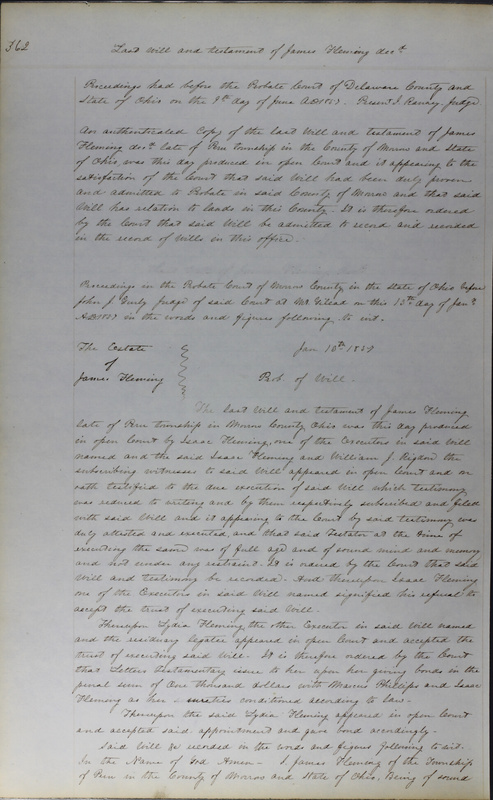 362
Last will and testament of James Fleming decd
Proceedings had before the Probate Court of Delaware County and
State of Ohio on the 9th day of June AD 1853. Present I. Ranney Judge
An authenticated Copy of the last Will and testament of James
Fleming decd late of Peru township in the County of Morrow and State
of Ohio, was this day produced in open Court and it appearing to the
satisfaction of the Court that said Will had been duly proven
and admitted to Probate in said County of Morrow and that said
Will has relation to lands in this County. It is therefore ordered
by the Court that said Will be admitted to record and recorded
in the record of Wills in this office.
Proceedings in the Probate Court of Morrow County in the state of Ohio before
John J. Gurly Judge of said Court at Mt. Gilead on this 10th day of Jany
in the words and figures following to wit.
The Estate
of
James Fleming
Jan 10th
Prob. of Will.
The last Will and testament of James Fleming
late of Peru township in Morrow County Ohio was this day produced
in open Court by Isaac Fleming, one of the Executors in said Will
named and the said Isaac Fleming and William J. Rigdon the
subscribing witnesses to said Will appeared in open Court and on
oath testified to the due execution of said Will which testimony
was reduced to writing and by them respectively subscribed and filed
with said Will and it appearing to the Court by said testimony was
duly attested and executed, and that said Testator at the time of
executing the same was of full age and of sound mind and memory
and not under any restraint. It is ordered by the Court that said
Will and testimony be recorded. And thereupon Isaac Fleming
one of the Executors in said Will named signified his refusal to
accept the trust of executing said Will.
Thereupon Lydia Fleming the other Executor in said Will named
and the residuary legatee appeared in open Court and accepted the
trust of executing said Will. It is therefore ordered by the Court
that Letters Testamentary issue to her upon her giving bonds in the
penal sum of One thousand dollars with Marcus Phillips and Isaac
Fleming as her sureties conditioned according to law.
Thereupon the said Lydia Fleming appeared in open Court
and accepted said appointment and gave bond accordingly.
Said Will is recorded in the words and figures following to wit.
In the Name of God Amen. I James Fleming of the Township
of Peru in the County of Morrow and State of Ohio, Being of sound